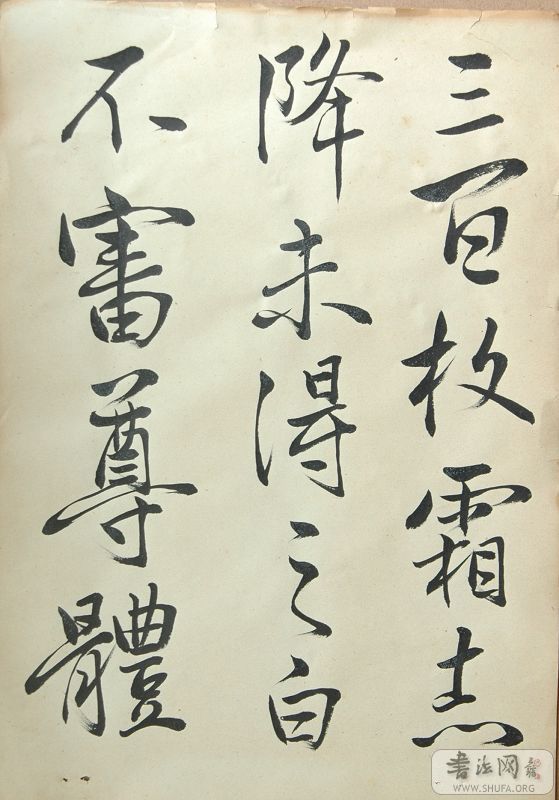 三百枚霜志
降未得之白
不審尊體
書法网
WWW.SHUFA.ORG